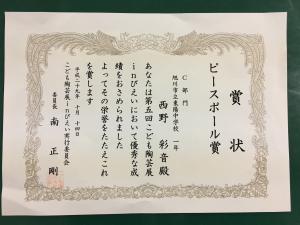 賞状
ピースボール賞
C部門
旭川市立東陽中学校 一年
西野 彩音 殿
あなたは第五回こども陶芸展
inびえいにおいて優秀な成
績をおさめられました
よってその栄誉をたたえこれ
を賞します
平成二十九年 十月 十四日
こども陶芸展inびえい実行委員会
委員長 南 正剛